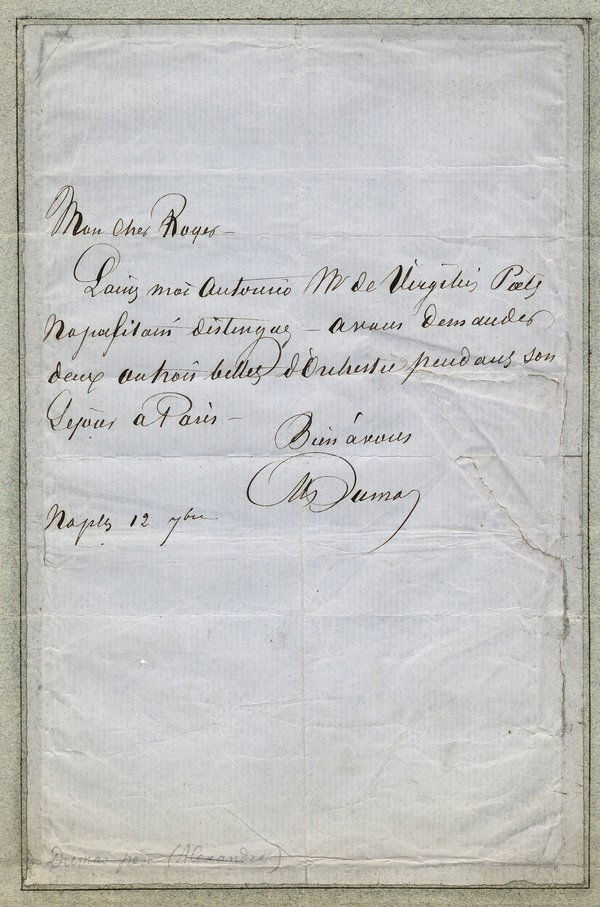 Mon cher Roger –
Laissez moi Autoriser Mr de Virgiliis Poete
Napolitain distingue – a vous demander
deux ou trois billets d'Orchestre pendant son
Sejour a Paris –
Bien à vous
Alex Dumas
Naples 12 7bre
Dumas père (Alexandre)